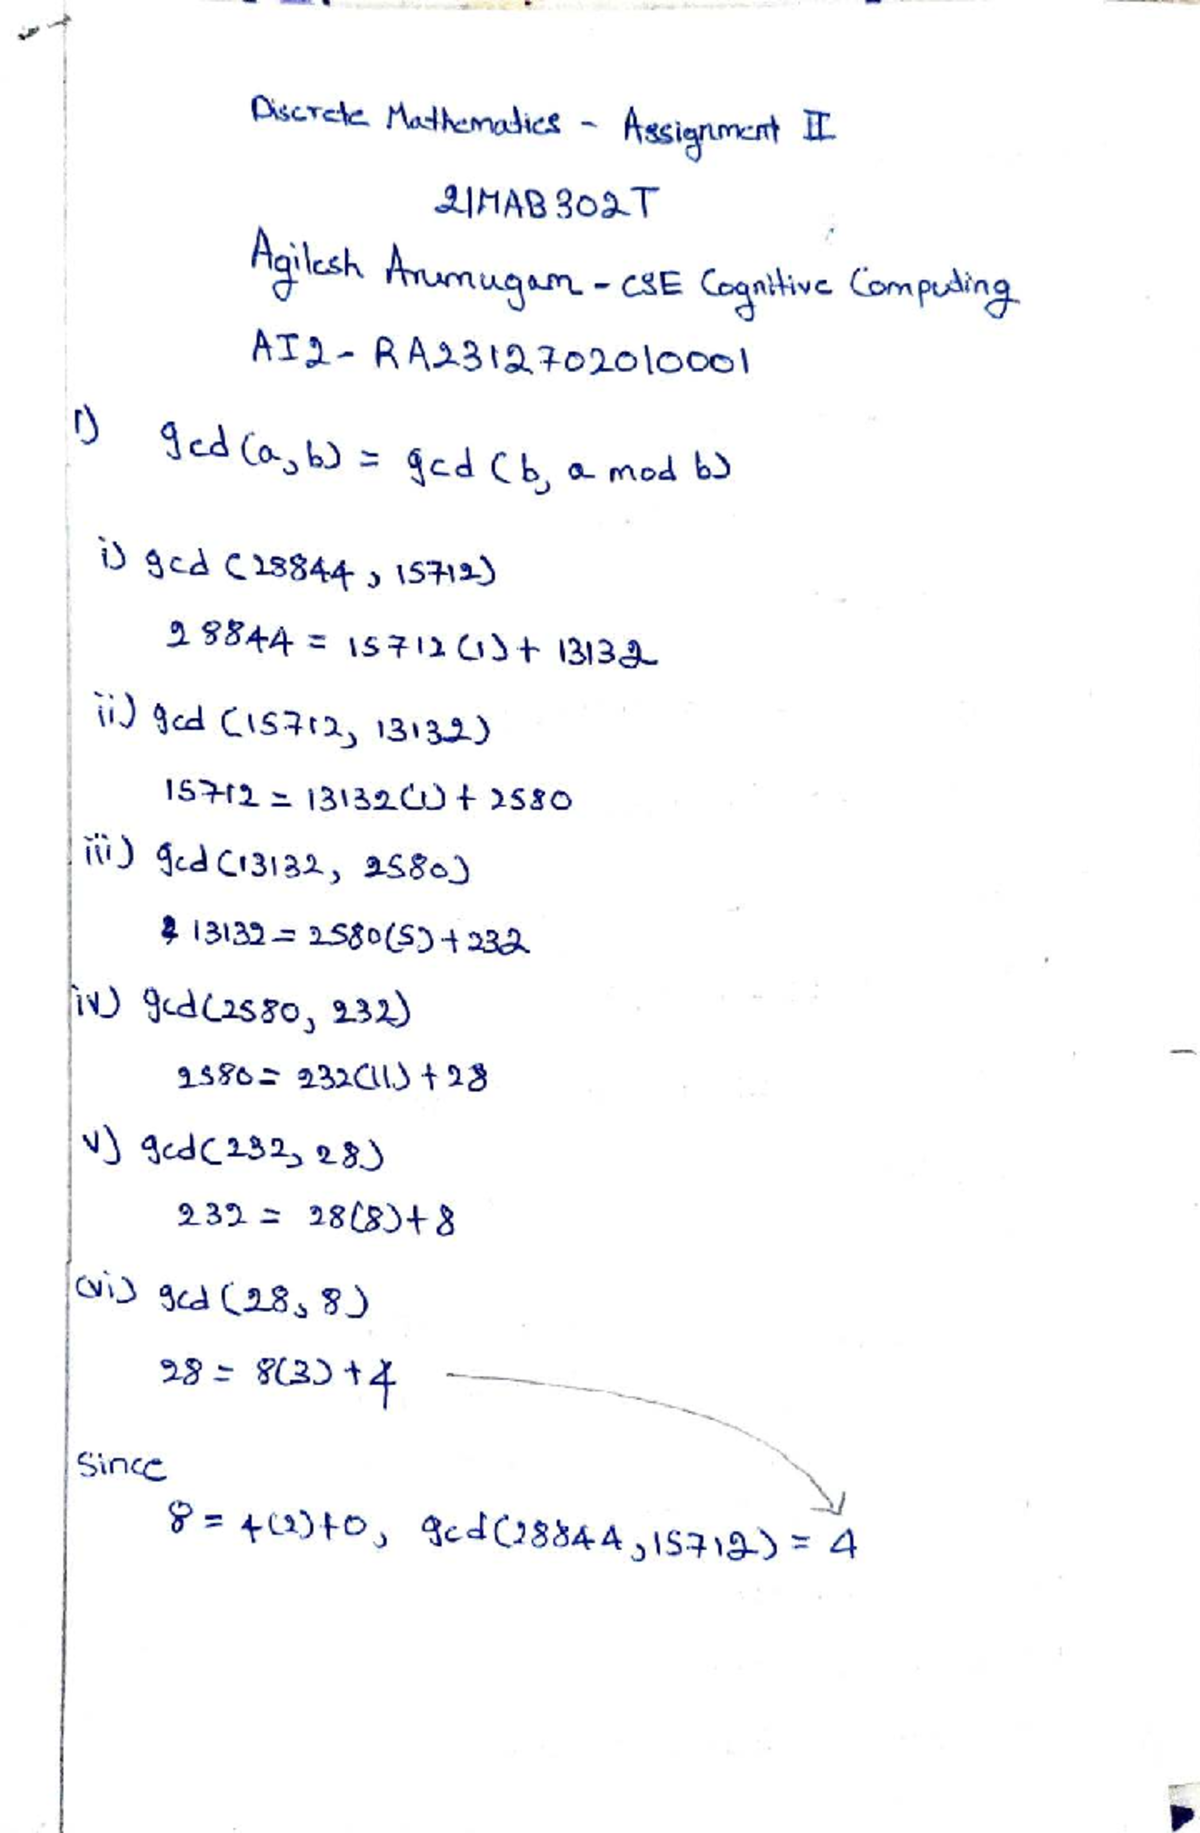 Discrete Mathematics - Assignment II
21MAB302T
Agilesh Arumugam - CSE Cognitive Computing
AI2 - RA2312702010001
1) gcd (a, b) = gcd (b, a mod b)
i) gcd (28844, 15712)
28844 = 15712 (1) + 13132
ii) gcd (15712, 13132)
15712 = 13132(1) + 2580
iii) gcd (13132, 2580)
13132 = 2580(5) + 232
iv) gcd(2580, 232)
2580 = 232(11) + 28
v) gcd(232, 28)
232 = 28(8)+8
(vi) gcd (28, 8)
28 = 8(3) + 4
Since
8 = 4(2)+0, gcd(28844, 15712) = 4